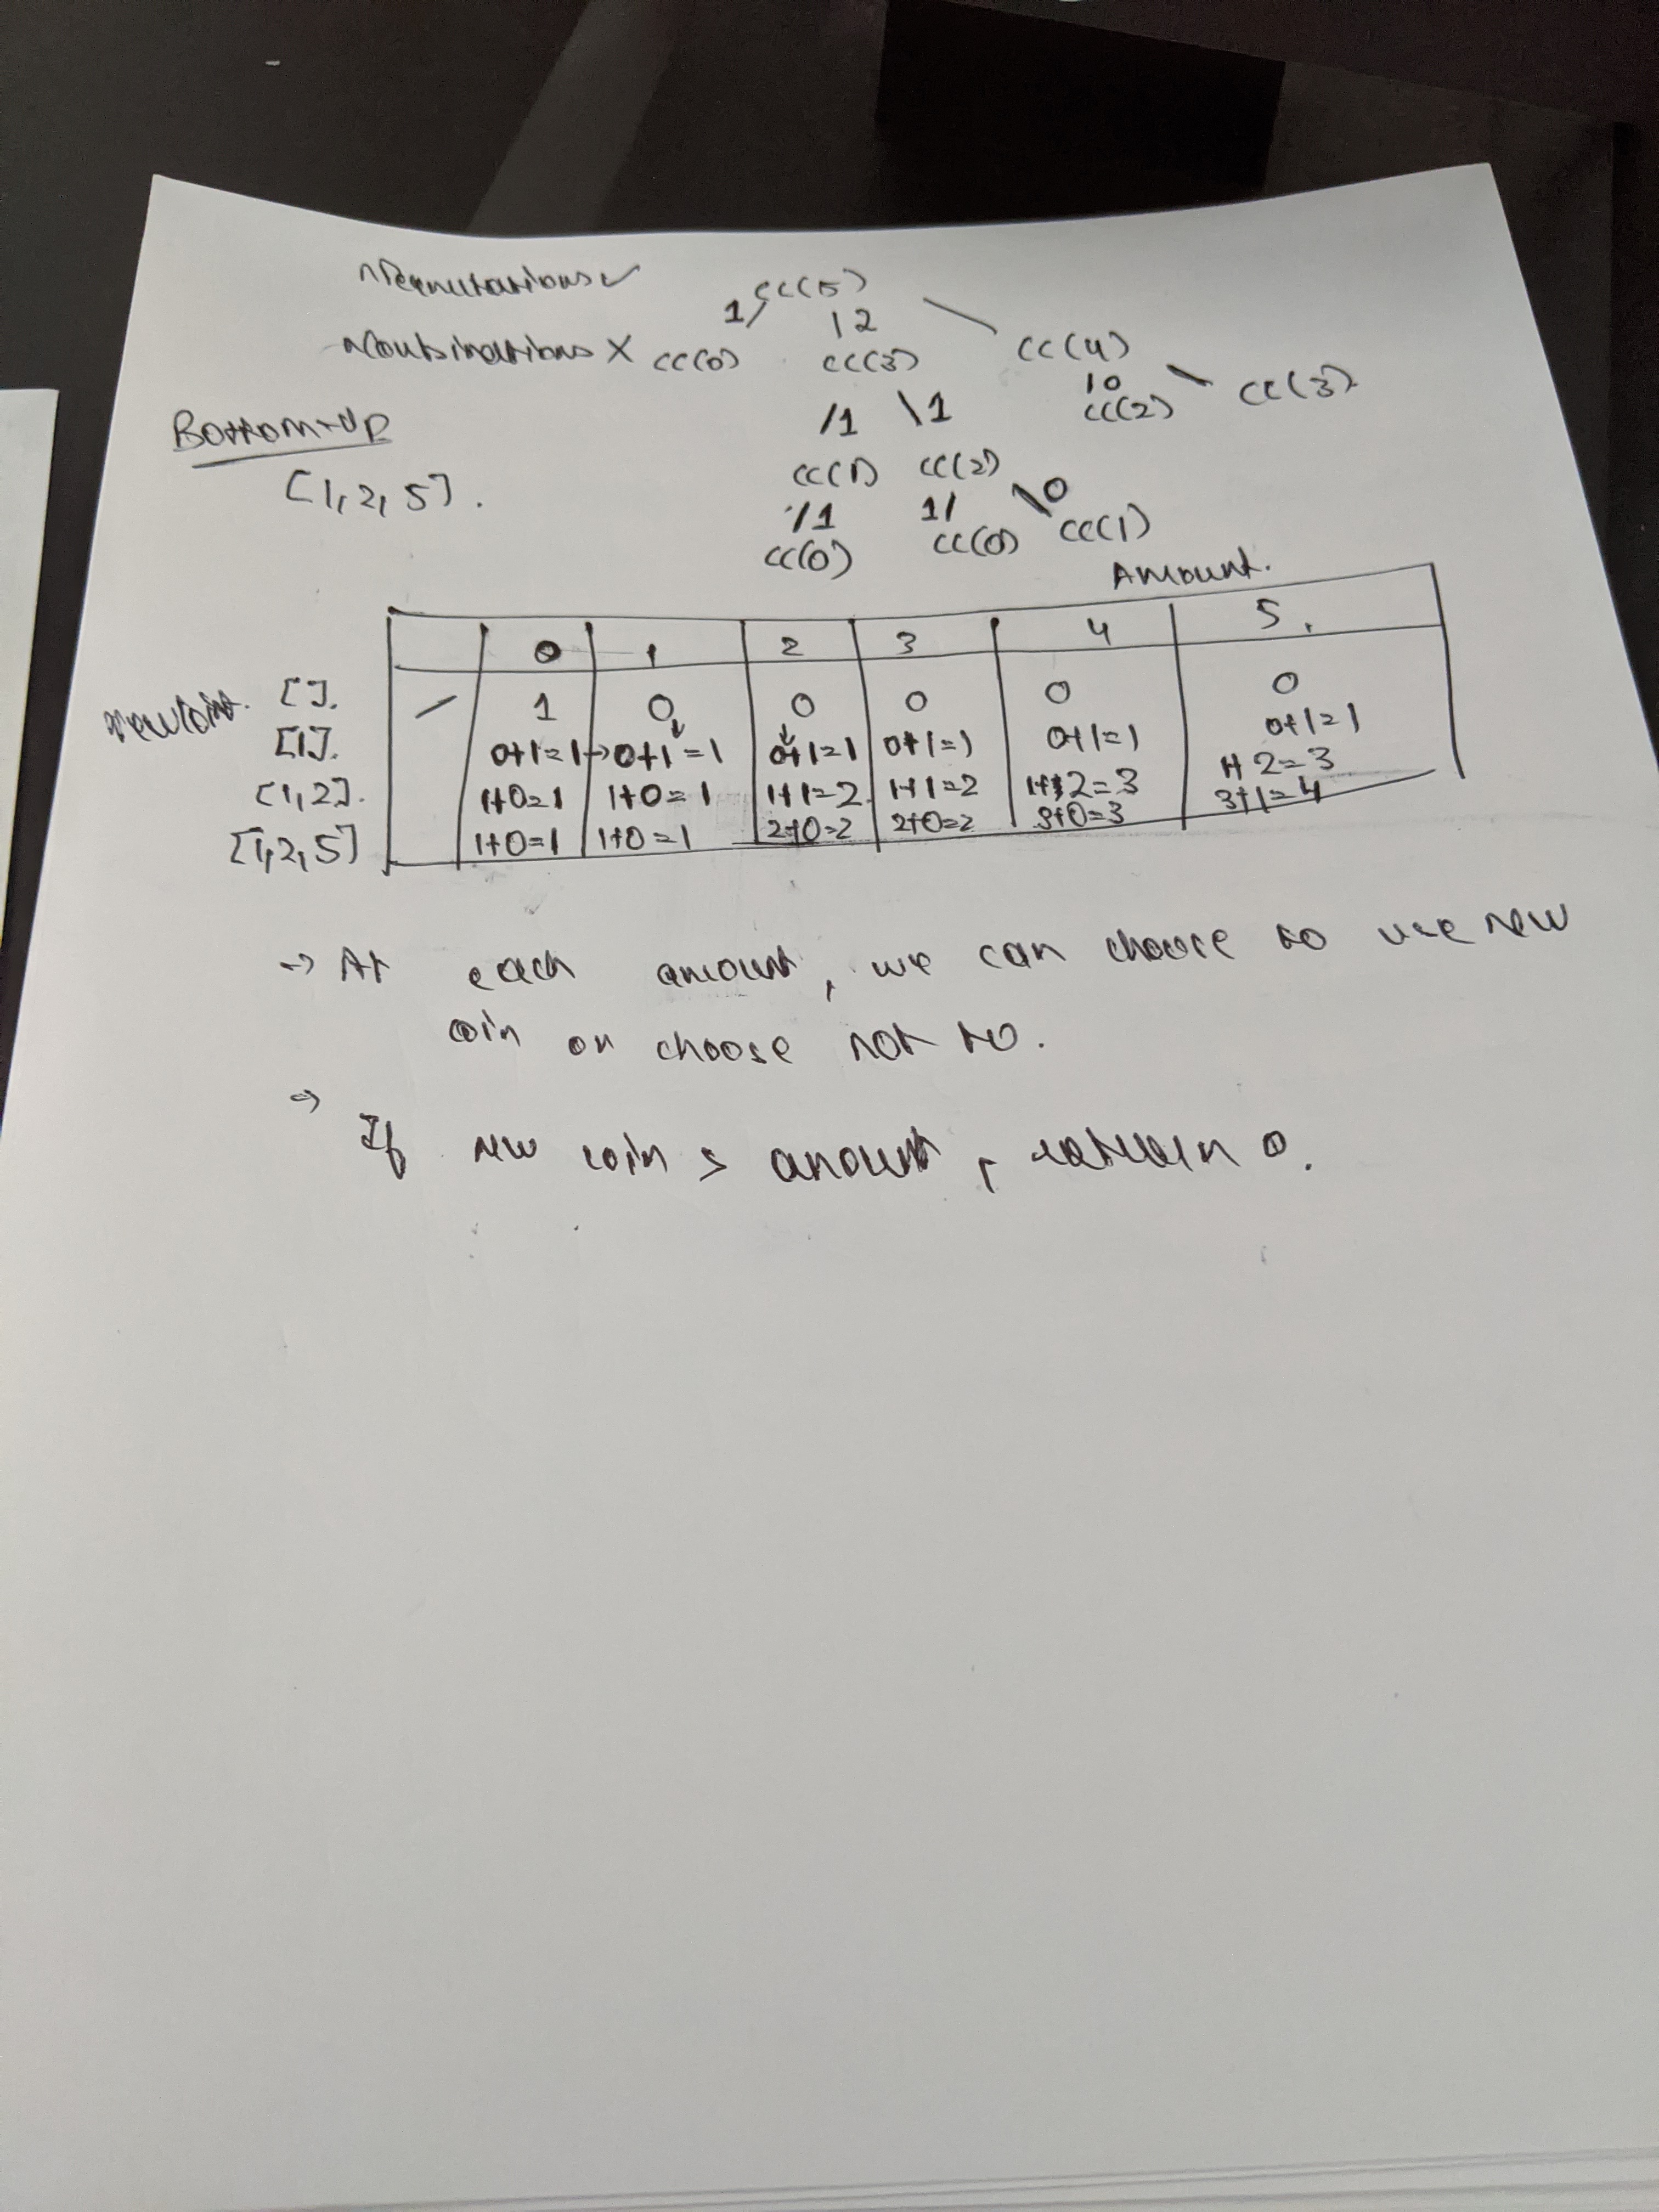 Permutations ✓
Combinations X
cc(5)
1/ | 2 \
cc(0) cc(3) cc(4)
/1 \1 | 0 \
cc(2) cc(3)
cc(1) cc(2)
/1 1/ \0
cc(0) cc(0) cc(1)
Bottom-Up
[1,2,5].
Amount.
0 1 2 3 4 5
New Coin.
[]. 1 0 0 0 0 0
[1]. 0+1=1 0+1=1 0+1=1 0+1=1 0+1=1 0+1=1
[1,2]. 1+0=1 1+0=1 1+1=2 1+1=2 1+2=3 1+2=3
[1,2,5] 1+0=1 1+0=1 2+0=2 2+0=2 3+0=3 3+1=4
→ At each amount, we can choose to use new
coin or choose not to.
→
If new coin > amount, return 0.